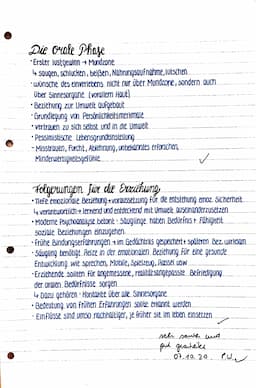 Die orale Phase
• Erster Lustgewinn → Mundzone
↳ saugen, schlucken, beißen, Nahrungsaufnahme, lutschen
• Wünsche des Einverleibens nicht nur über Mundzone, sondern auch
über Sinnesorgane (vorallem Haut)
• Beziehung zur Umwelt aufgebaut
• Grundlegung von Persönlichkeitsmerkmale
• Vertrauen zu sich selbst und in die Umwelt
• Pessimistische Lebensgrundeinstellung
• Misstrauen, Furcht, Ablehnung, unbekanntes erforschen,
Minderwertigkeitsgefühle
Folgerungen für die Erziehung
• Tiefe emotionale Beziehung → Voraussetzung für die Entstehung emot. Sicherheit
↳ verantwortlich + lernend und entdeckend mit Umwelt auseinanderzusetzen
• Moderne Psychoanalyse betont: Säuglinge haben Bedürfnis + Fähigkeit
soziale Beziehungen einzugehen
• Frühe Bindungserfahrungen → im Gedächtnis gespeichert + späteren Bez. wirksam
• Säugling benötigt Reize in der emotionalen Beziehung für eine gesunde
Entwicklung wie sprechen, Mobile, Spielzeug, Rassel usw
• Erziehende sollten für angemessene, realitätsangepasste Befriedigung
der oralen Bedürfnisse sorgen
↳ Dazu gehören: Kontakte über alle Sinnesorgane
• Bedeutung von frühen Erfahrungen sollte erkannt werden
• Einflüsse sind umso nachhaltiger, je früher sie im Leben einsetzen
sehr sauber und
gut gearbeitet
07.10.20